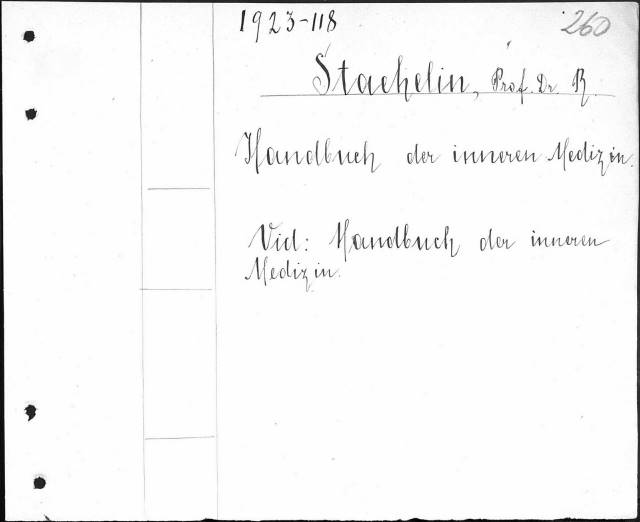 1923-118
260
Staehelin, Prof. Dr. R.
Handbuch der inneren Medizin.
Vid: Handbuch der inneren
Medizin.